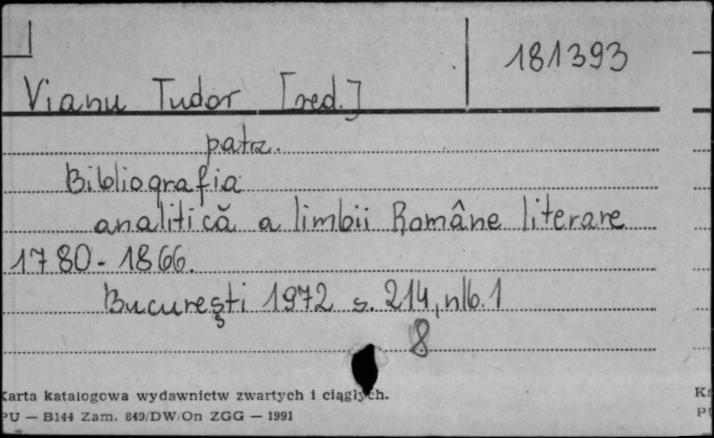 181393
Vianu Tudor [red.]
patrz.
Bibliografia
analitică a limbii Române literare
1780-1866.
Bucureşti 1972 s. 214, nlb. 1
8
Karta katalogowa wydawnictw zwartych i ciągłych.
PU — B144 Zam. 849/DW/On ZGG — 1991